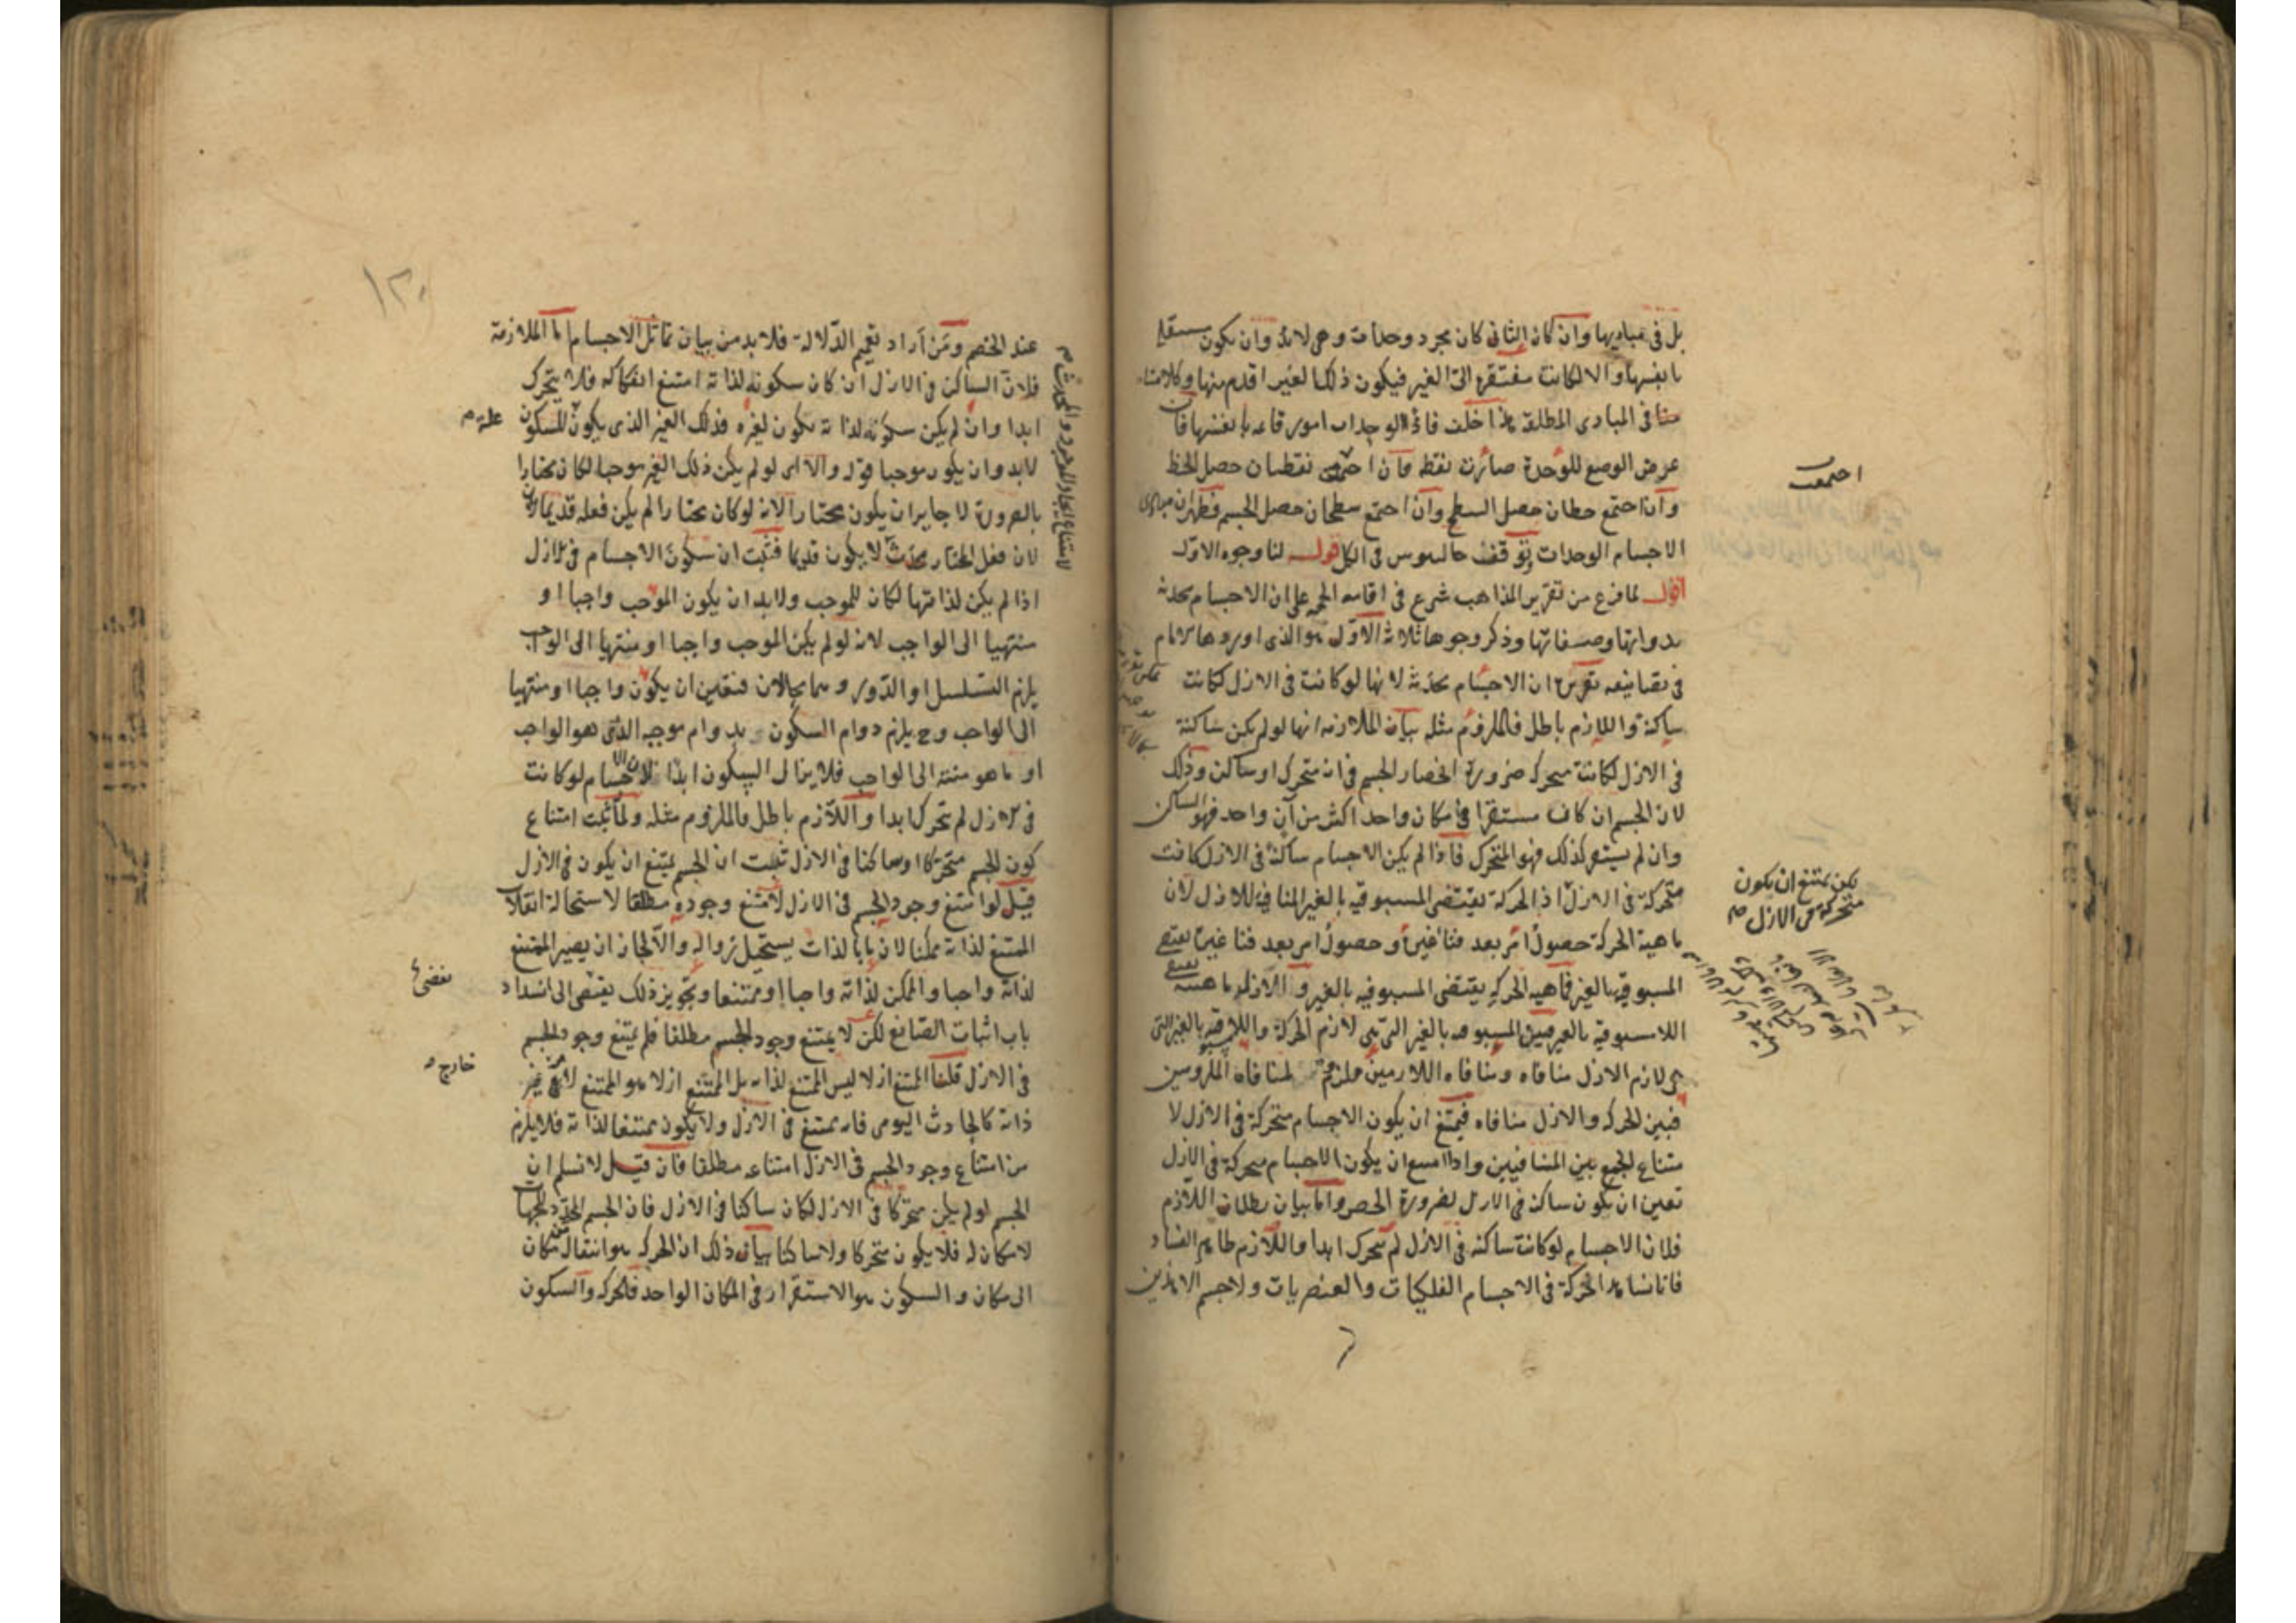 بل فى مباديها وان كان الثانى كان مجرد وحدات وهى لا بد وان يكون مستقله
بانفسها والا لكانت مفتقرة الى الغير فيكون ذلك الغير اقدم منها وكلامنا
فى المبادى المطلقة هذا خلف فاذا الوحدات امور قائمه بانفسها فان
عرض الوضع للوحدة صارت نقطه فان نقطتان حصل الخط
وان اجتمع خطان حصل السطح وان اجتمع سطحان حصل الجسم فظهر ان مبادى
الاجسام الوحدات وتوقف جالينوس فى الكل قوله لنا وجوه الاول
اقول لما فرغ من تقرير المذاهب شرع فى اقامه الحجه على ان الاجسام محدثه
بذواتها وصفاتها وذكر وجوها ثلاثة الاول هو الذى اورده الامام
فى تصانيفه تقريره ان الاجسام محدثه لانها لو كانت فى الازل لكانت
ساكنة واللازم باطل فالملزوم مثله بيان الملازمه انها لو لم يكن ساكنة
فى الازل لكانت متحركه ضرورة انحصار الجسم فى انه متحرك او ساكن وذلك
لان الجسم ان كان مستقرا فى مكان واحد اكثر من آن واحد فهو الساكن
وان لم يستقر كذلك فهو المتحرك فاذا لم يكن الاجسام ساكنة فى الازل كانت
متحركة فى الازل اذ الحركة يقتضى المسبوقيه بالغير المنافيه للازل لان
ماهية الحركة حصول امر بعد فناء غيره وحصول امر بعد فناء غيره يقتضى
المسبوقيه بالغير فماهية الحركه يقتضى المسبوقيه بالغير والازليه ماهيته تقتضى
اللامسبوقيه بالغير فبين المسبوقيه بالغير التى هى لازم الحركة واللامسبوقيه بالغير التى
هى لازم الازل منافاه ومنافاه اللازمين ملزومة لمنافاه الملزومين
فبين الحركه والازل منافاه فيمتنع ان يكون الاجسام متحركة فى الازل لا
متناع الجمع بين المتنافيين واذا امتنع ان يكون الاجسام متحركة فى الازل
تعين ان يكون ساكنة فى الازل لضرورة الحصر واما بيان بطلان اللازم
فلان الاجسام لو كانت ساكنة فى الازل لم يتحرك ابدا واللازم ظاهر الفساد
فانا نشاهد الحركة فى الاجسام الفلكيات والعنصريات ولا جسم الا هذين
احتمعت
يكن يمتنع ان يكون
متحركة فى الازل صح
١٢٠
عند الخصم ومن اراد تعميم الدلالة فلا بد من بيان تماثل الاجسام اما الملازمة
فلان الساكن فى الازل ان كان سكونه لذاته امتنع انفكاكه فلا يتحرك
ابدا وان لم يكن سكونه لذاته يكون لغيره فذلك الغير الذى يكون للسكون
لابد وان يكون موجبا قوله والا اى لو لم يكن ذلك الغير موجبا لكان مختارا
بالضرورة لا جايز ان يكون مختارا لانه لو كان مختارا لم يكن فعله قديما
لان فعل المختار محدث لا يكون قديما فثبت ان سكون الاجسام فى الازل
اذا لم يكن لذاتها لكان للموجب ولابد ان يكون الموجب واجبا او
منتهيا الى الواجب لانه لو لم يكن الموجب واجبا او منتهيا الى الواجب
يلزم التسلسل او الدور وهما محالان فتعين ان يكون واجبا او منتهيا
الى الواجب وح يلزم دوام السكون بدوام موجبه الذى هو الواجب
او ما هو منته الى الواجب فلا يزال السكون ابدا فلان الاجسام لو كانت
فى الازل لم تتحرك ابدا واللازم باطل فالملزوم مثله ولما ثبت امتناع
كون الجسم متحركا او ساكنا فى الازل ثبت ان الجسم يمتنع ان يكون فى الازل
قيل لو امتنع وجود الجسم فى الازل لامتنع وجوده مطلقا لاستحالة انقلاب
الممتنع لذاته ممكنا لان ما بالذات يستحيل زواله والا لجاز ان يصير الممتنع
لذاته واجبا والممكن لذاته واجبا او ممتنعا وتجويز ذلك يفضى الى انسداد
باب اثبات الصانع لكن لا يمتنع وجود الجسم مطلقا فلم يمتنع وجود الجسم
فى الازل قلنا الممتنع ازلا ليس الممتنع لذاته بل الممتنع ازلا هو الممتنع لامر غير
ذاته كالحادث اليومى فانه يمتنع فى الازل ولا يكون ممتنعا لذاته فلا يلزم
من امتناع وجود الجسم فى الازل امتناعه مطلقا فان قيل لا نسلم ان
الجسم لو لم يكن متحركا فى الازل لكان ساكنا فى الازل فان الجسم المحدد للجهات
لا مكان له فلا يكون متحركا ولا ساكنا بيان ذلك ان الحركه هو انتقال من مكان
الى مكان والسكون هو الاستقرار فى المكان الواحد فالحركه والسكون
علة م
يفضى
خارج م